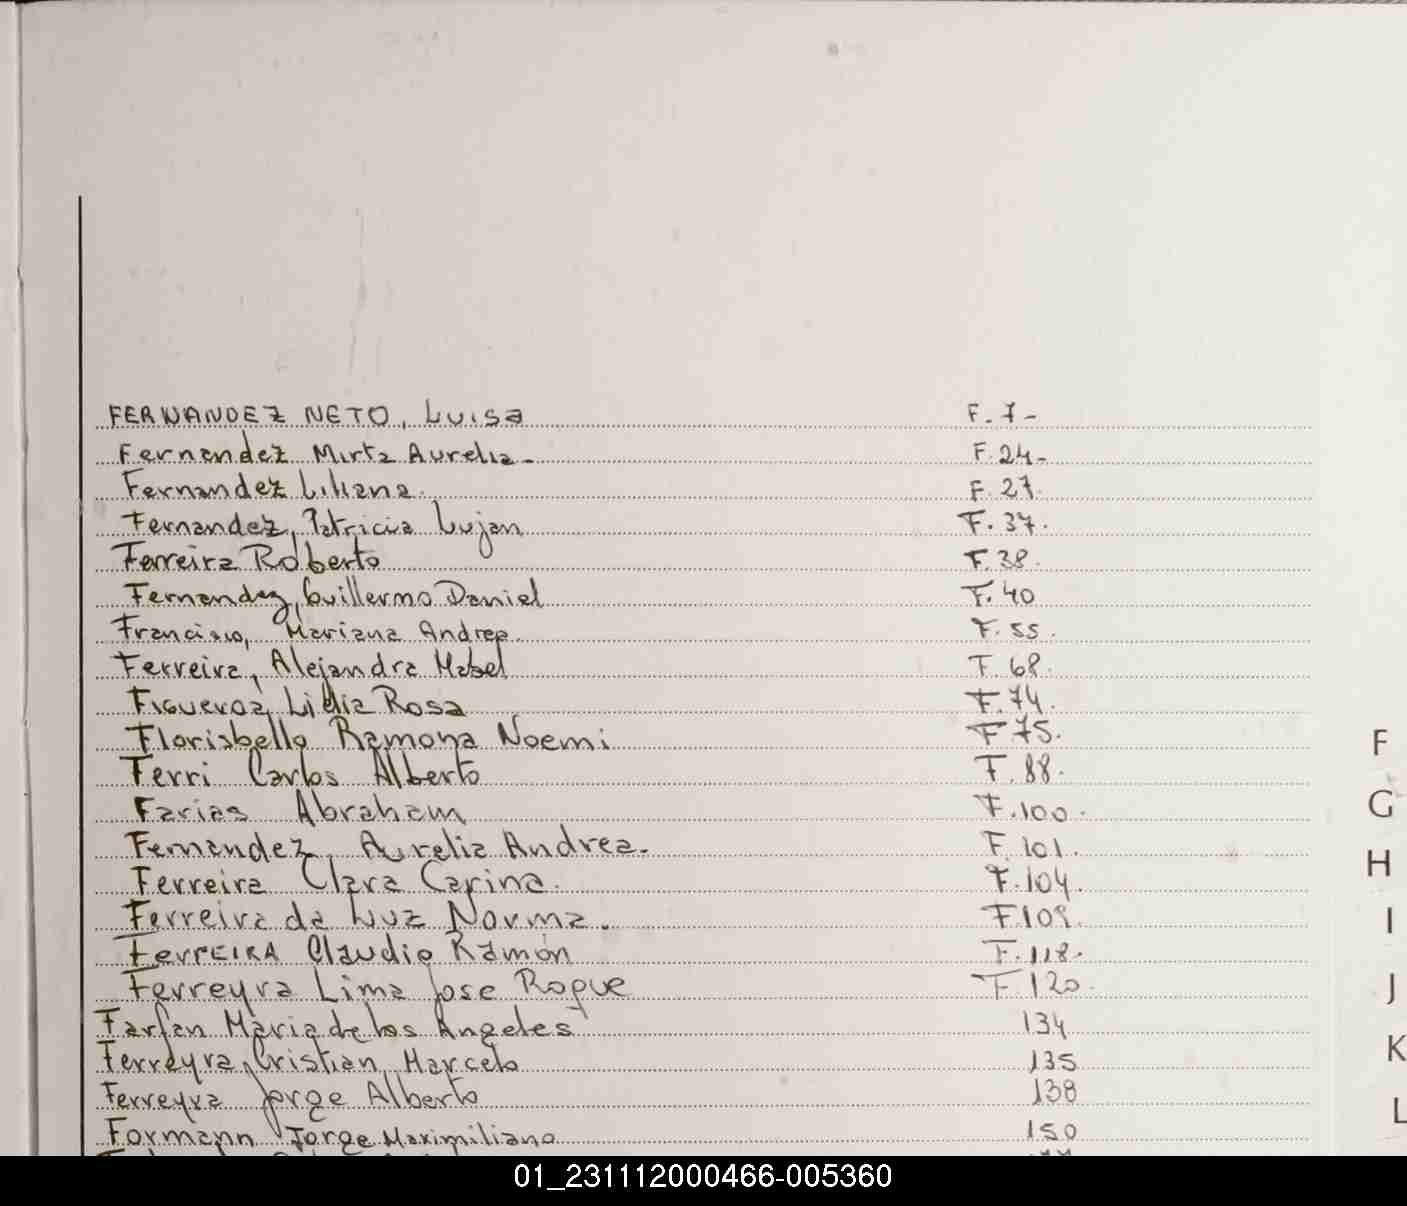 FERNANDEZ NETO, LUISA F. 7-
Fernandez Mirta Aurelia.- F. 24-
Fernandez Liliana. F. 27.
Fernandez, Patricia Lujan F. 37.
Ferreira Roberto F. 38.
Fernandez, Guillermo Daniel F. 40
Francisco, Mariana Andrea. F. 55.
Ferreira, Alejandra Mabel F. 68.
Figueroa, Lidia Rosa F. 74.
Florisbello Ramona Noemi F 75.
Ferri Carlos Alberto F. 88.
Farias Abraham F. 100.
Fernandez, Aurelia Andrea.- F. 101.
Ferreira Clara Carina. F. 104.
Ferreira da Luz Norma. F. 109.
FerrEIRA Claudio Ramón F. 118.
Ferreyra Lima Jose Roque F. 120.
Farfan Maria de los Angeles 134
Ferreyra, Cristian Marcelo 135
Ferreyra Jorge Alberto 138
Formann Jorge Maximiliano 150
F
G
H
I
J
K
L
01_231112000466-005360